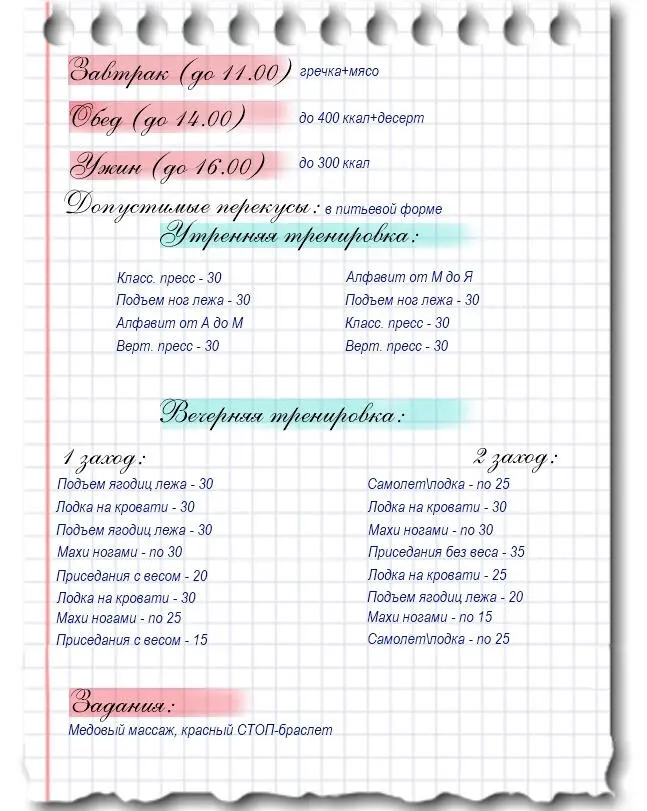 Завтрак (до 11.00) гречка+мясо
Обед (до 14.00) до 400 ккал+десерт
Ужин (до 16.00) до 300 ккал
Допустимые перекусы: в питьевой форме
Утренняя тренировка:
Класс. пресс - 30
Подъем ног лежа - 30
Алфавит от А до М
Верт. пресс - 30
Алфавит от М до Я
Подъем ног лежа - 30
Класс. пресс - 30
Верт. пресс - 30
Вечерняя тренировка:
1 заход:
Подъем ягодиц лежа - 30
Лодка на кровати - 30
Подъем ягодиц лежа - 30
Махи ногами - по 30
Приседания с весом - 20
Лодка на кровати - 30
Махи ногами - по 25
Приседания с весом - 15
2 заход:
Самолет\лодка - по 25
Лодка на кровати - 30
Махи ногами - по 30
Приседания без веса - 35
Лодка на кровати - 25
Подъем ягодиц лежа - 20
Махи ногами - по 15
Самолет\лодка - по 25
Задания:
Медовый массаж, красный СТОП-браслет